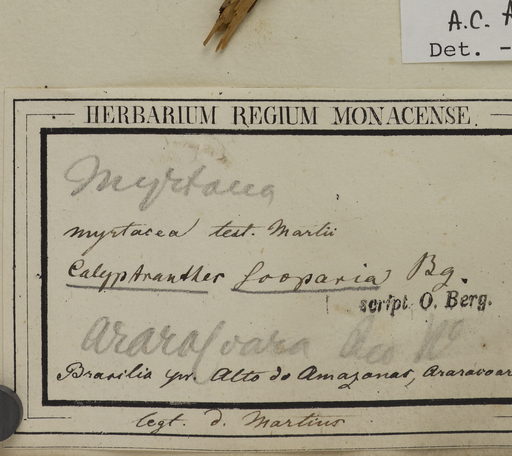 A.C. A
Det. -
HERBARIUM REGIUM MONACENSE.
Myrtacea
Myrtacea test. Martii
Calyptranthes Scoparia Bg.
script. O. Berg.
Araracoara
Brasilia pr. Alto do Amazonas, Araracoar
legt. d. Martius